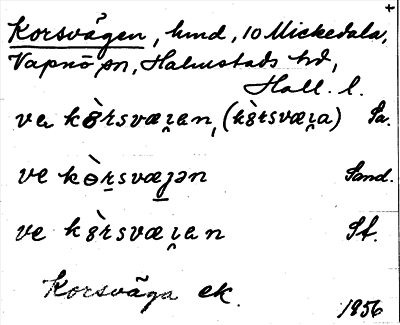 +
Korsvägen, hmd, 10 Mickedala,
Vapnö sn, Halmstads hd,
Hall. l.
va kɵ̀rsvæɪ̯an, (kɵ̀rsvæɪ̯a) Sa.
ve kɵ̀rsvæjən Sand.
ve kɵ̀rsvæɪ̯an St.
Korsväga ek.
1956